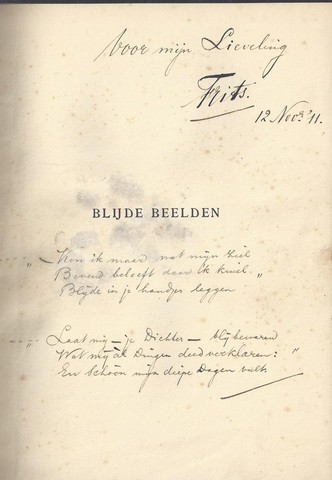 Voor mijn Lieveling
Frits.
12 Nov. '11.
BLIJDE BEELDEN
„Kon ik maar, wat mijn Ziel
Bevend belooft daar ik kniel,
Blijde in je handjes leggen
„Laat mij – je Dichter – blij bewaren
Wat mij al Dingen deed verklaren: "
En Schoon mijn diepe Dagen vult.